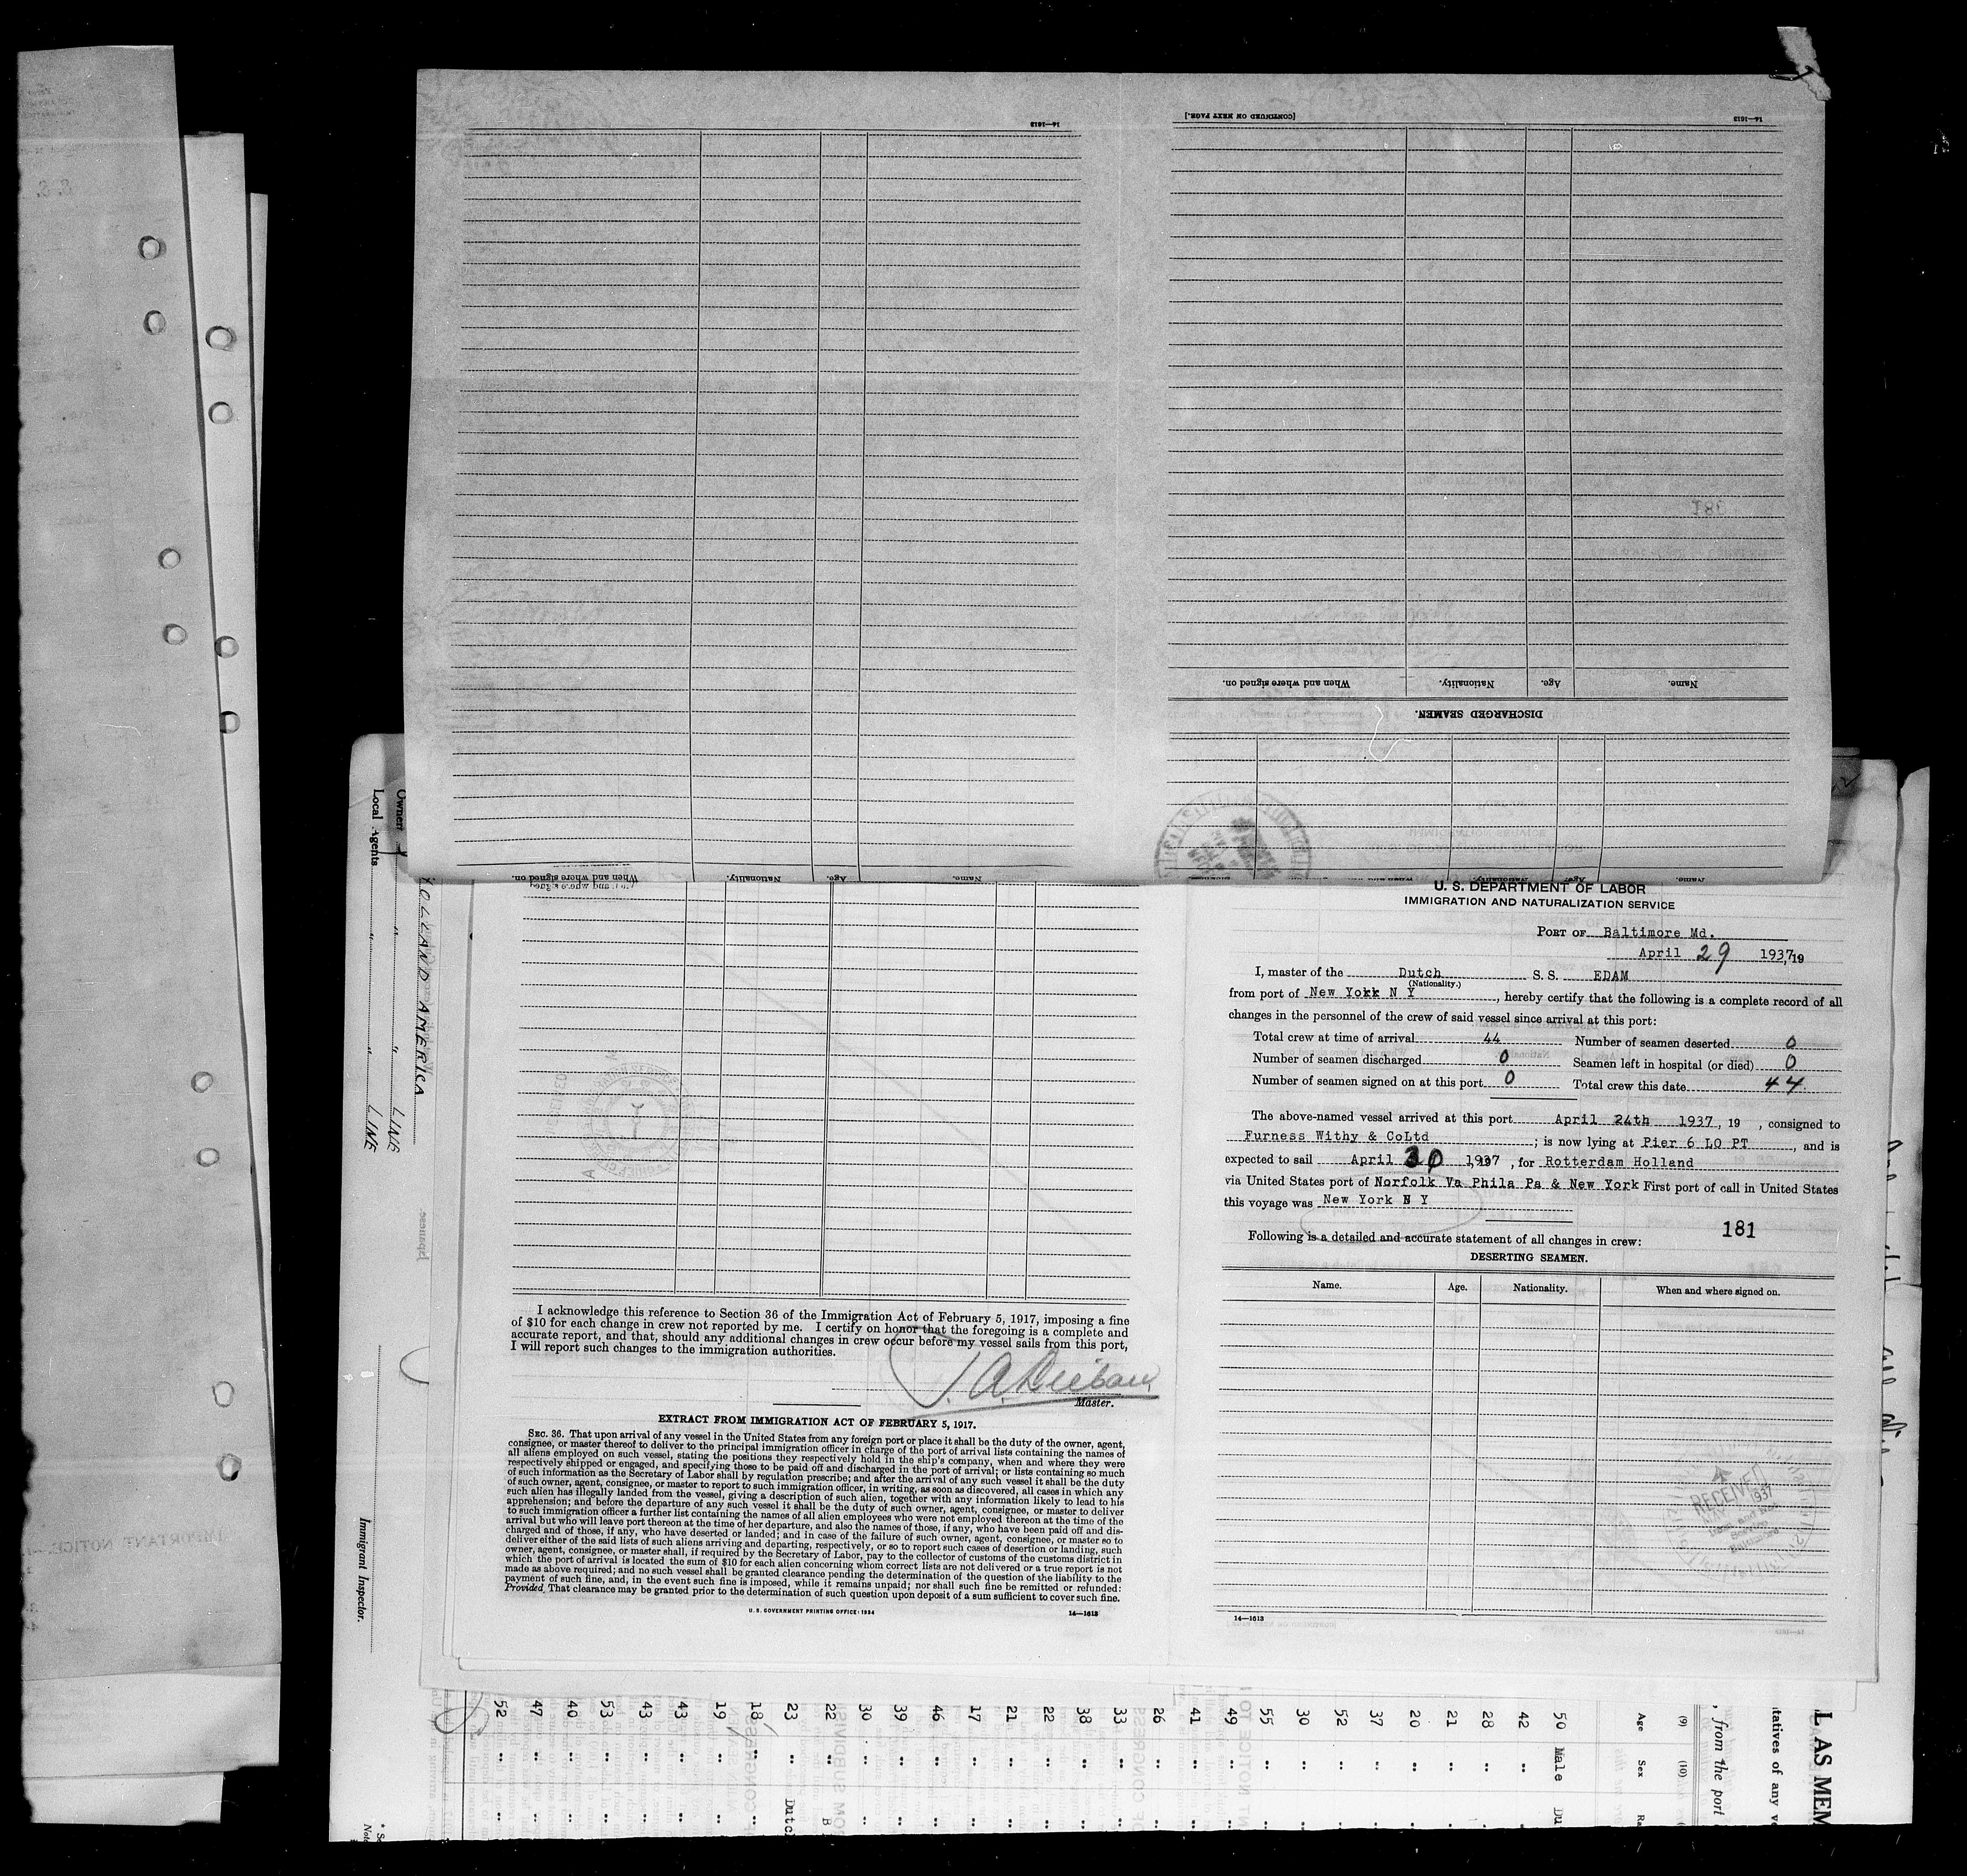 14—1613
[CONTINUED ON NEXT PAGE.]
14—1613
When and where signed on.
Nationality.
Age.
Name.
DISCHARGED SEAMEN.
When and where signed on.
Nationality.
Age.
Name.
U. S. DEPARTMENT OF LABOR
IMMIGRATION AND NATURALIZATION SERVICE
PORT OF Baltimore Md.
April 29 1937, 19
I, master of the Dutch S. S. EDAM
(Nationality.)
from port of New York N Y, hereby certify that the following is a complete record of all
changes in the personnel of the crew of said vessel since arrival at this port:
Total crew at time of arrival 44 Number of seamen deserted 0
Number of seamen discharged 0 Seamen left in hospital (or died) 0
Number of seamen signed on at this port 0 Total crew this date 44
The above-named vessel arrived at this port April 24th 1937, 19 , consigned to
Furness Withy & CoLtd ; is now lying at Pier 6 LO PT, and is
expected to sail April 30 1937, for Rotterdam Holland
via United States port of Norfolk Va Phila Pa & New York First port of call in United States
this voyage was New York N Y
181
Following is a detailed and accurate statement of all changes in crew:
DESERTING SEAMEN.
Name. Age. Nationality. When and where signed on.
RECEIVED
1937
14—1613
I acknowledge this reference to Section 36 of the Immigration Act of February 5, 1917, imposing a fine
of $10 for each change in crew not reported by me. I certify on honor that the foregoing is a complete and
accurate report, and that, should any additional changes in crew occur before my vessel sails from this port,
I will report such changes to the immigration authorities.
Master.
EXTRACT FROM IMMIGRATION ACT OF FEBRUARY 5, 1917.
SEC. 36. That upon arrival of any vessel in the United States from any foreign port or place it shall be the duty of the owner, agent,
consignee, or master thereof to deliver to the principal immigration officer in charge of the port of arrival lists containing the names of
all aliens employed on such vessel, stating the positions they respectively hold in the ship's company, when and where they were
respectively shipped or engaged, and specifying those to be paid off and discharged in the port of arrival; or lists containing so much
of such information as the Secretary of Labor shall by regulation prescribe; and after the arrival of any such vessel it shall be the duty
of such owner, agent, consignee, or master to report to such immigration officer, in writing, as soon as discovered, all cases in which any
such alien has illegally landed from the vessel, giving a description of such alien, together with any information likely to lead to his
apprehension; and before the departure of any such vessel it shall be the duty of such owner, agent, consignee, or master to deliver
to such immigration officer a further list containing the names of all alien employees who were not employed thereon at the time of the
arrival but who will leave port thereon at the time of her departure, and also the names of those, if any, who have been paid off and dis-
charged and of those, if any, who have deserted or landed; and in case of the failure of such owner, agent, consignee, or master so to
deliver either of the said lists of such aliens arriving and departing, respectively, or so to report such cases of desertion or landing, such
owner, agent, consignee, or master shall, if required by the Secretary of Labor, pay to the collector of customs of the customs district in
which the port of arrival is located the sum of $10 for each alien concerning whom correct lists are not delivered or a true report is not
made as above required; and no such vessel shall be granted clearance pending the determination of the question of the liability to the
payment of such fine, and, in the event such fine is imposed, while it remains unpaid; nor shall such fine be remitted or refunded:
Provided, That clearance may be granted prior to the determination of such question upon deposit of a sum sufficient to cover such fine.
U. S. GOVERNMENT PRINTING OFFICE: 1934 14—1613
HOLLAND AMERICA
Owners " " LINE
Local Agents " " LINE
Immigrant Inspector.
L AS MEM
tatives of any ve
, from the port
(9) (10)
Age Sex Ra
50 Male Du
42 " "
28 " "
21 " "
20 " "
37 " "
52 " "
30 " "
55 " "
49 " "
41 " "
26 " "
33 " "
38 " "
22 " "
21 " "
17 " "
46 " "
39 " "
30 " "
22 " B
23 " Dutc
18 " "
19 " "
43 " "
43 " "
53 " "
40 " "
47 " "
52 " "
IMPORTANT NOTICE